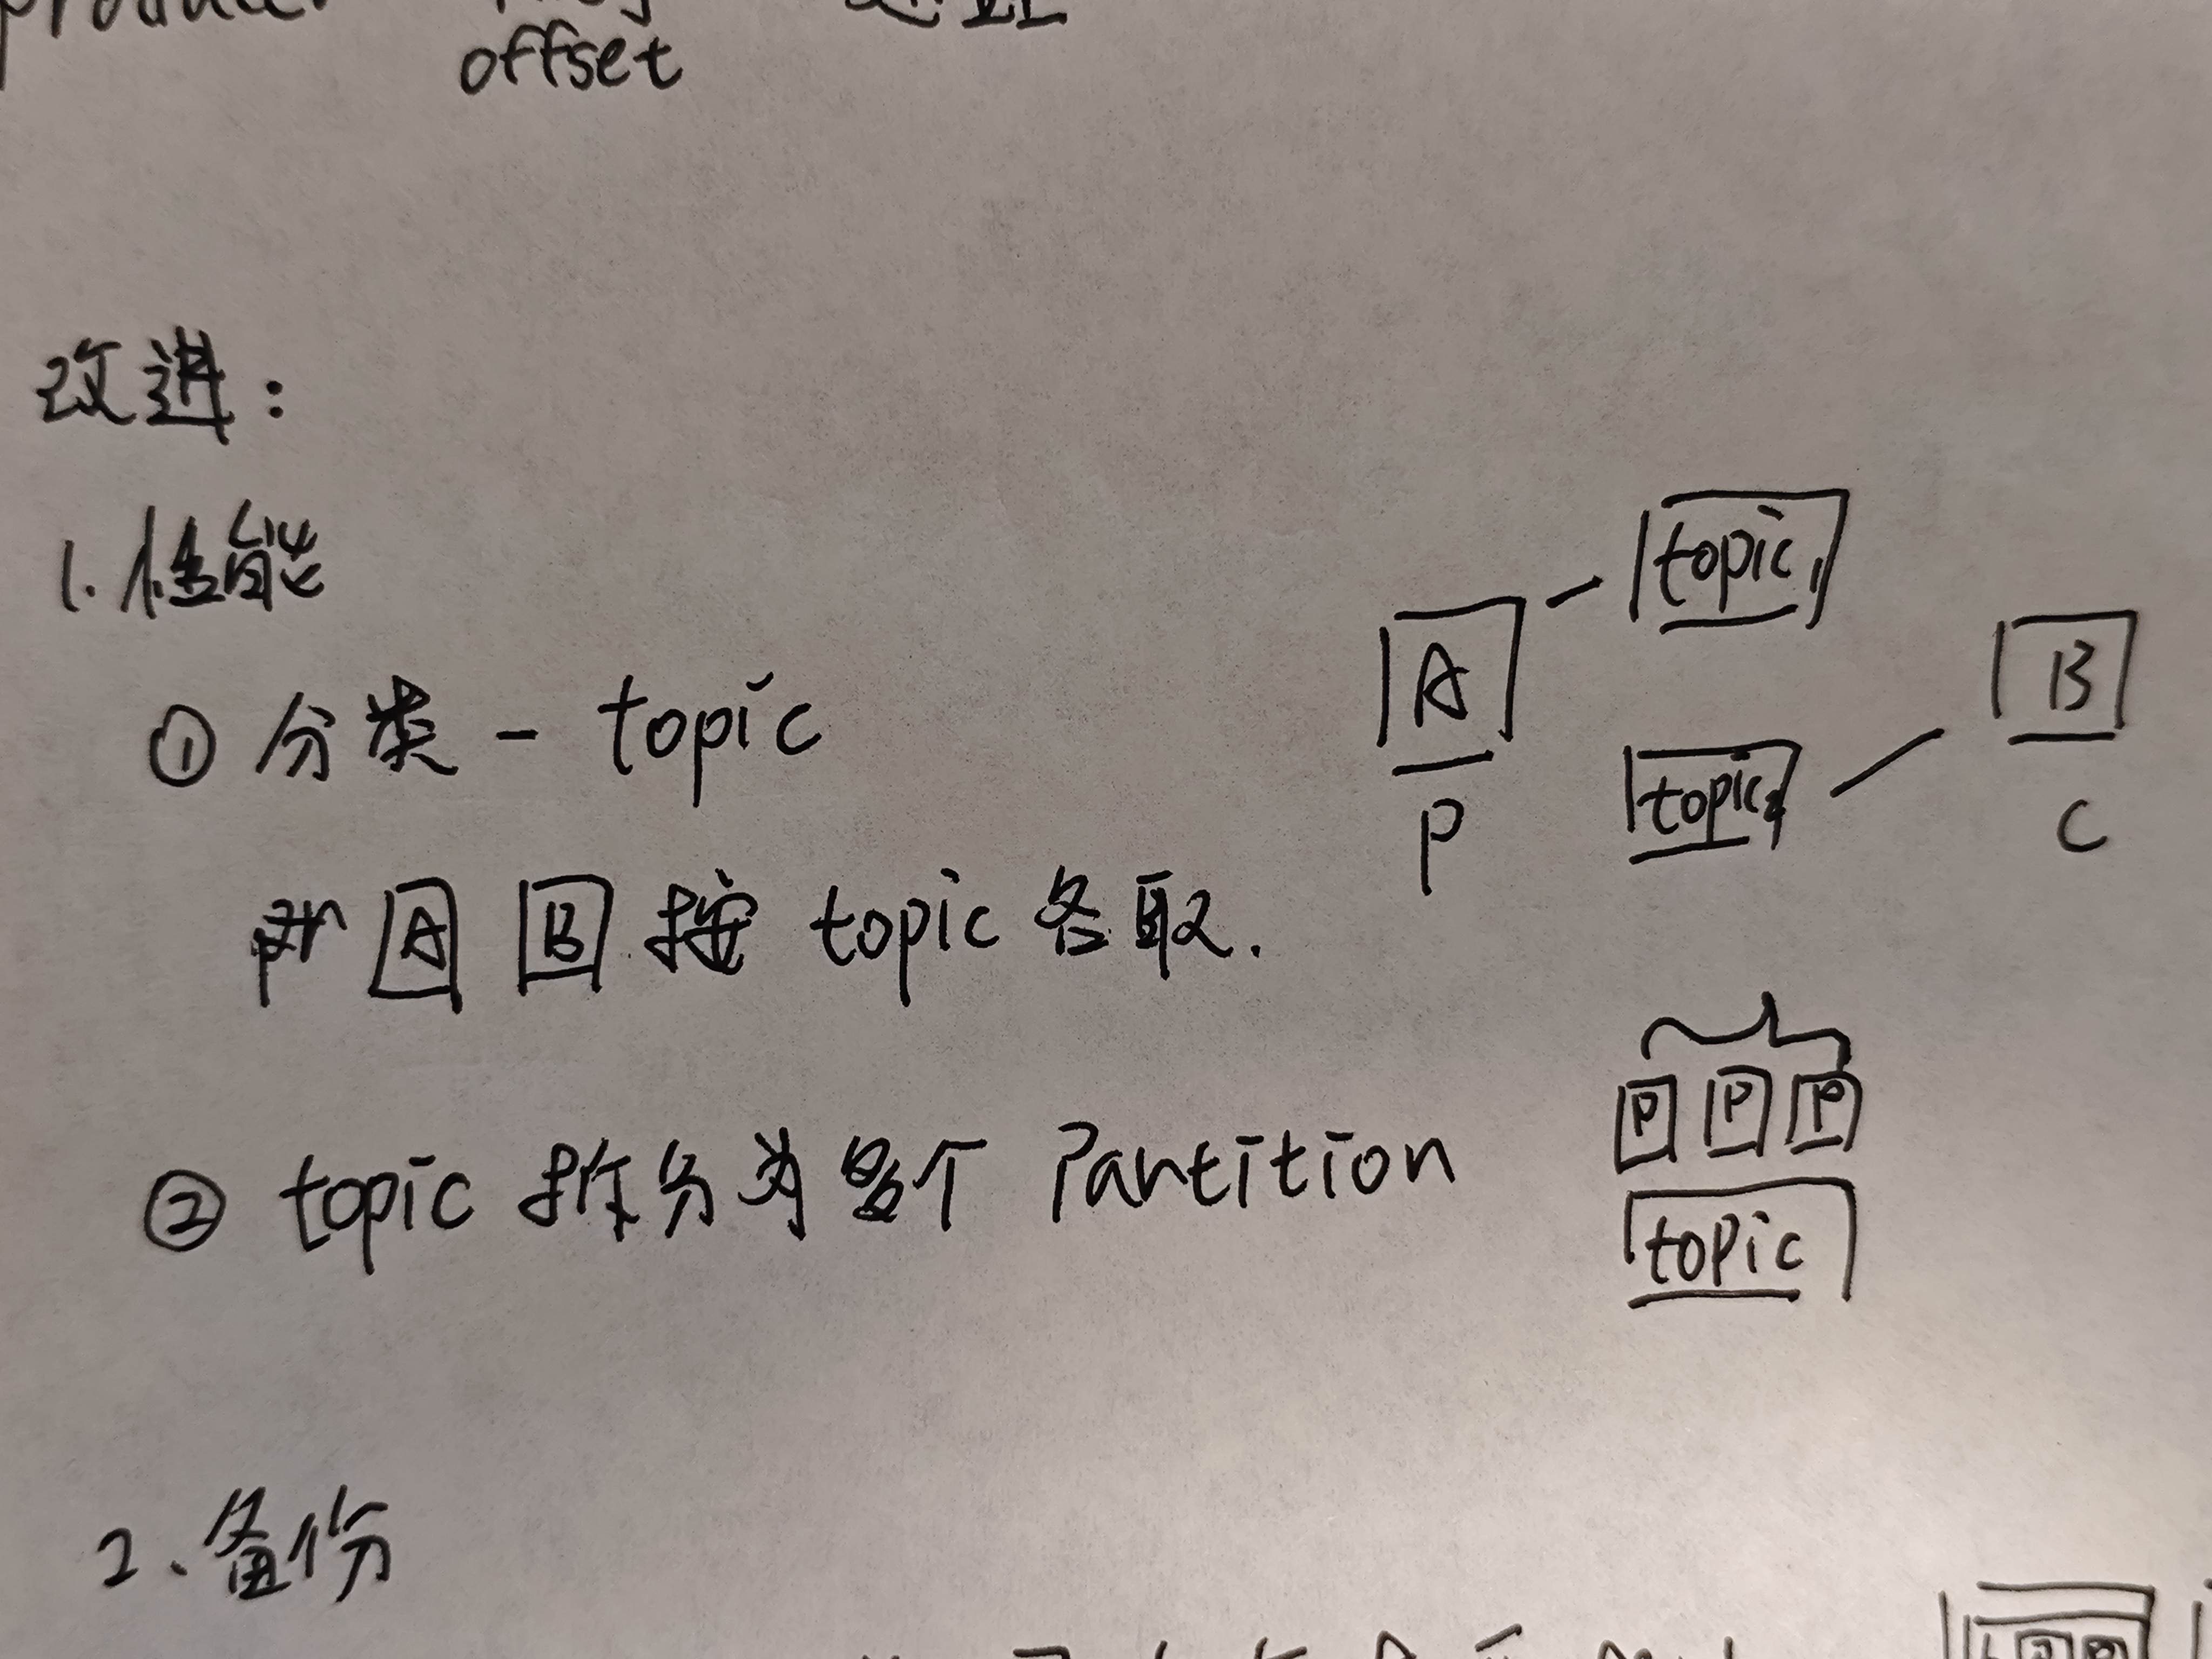 producer
offset
改进：
1. 性能
① 分类 - topic
A B 按 topic 各取.
② topic 拆分为多个 Partition
2、备份
topic1
A
P
topic2
B
C
P P P
topic